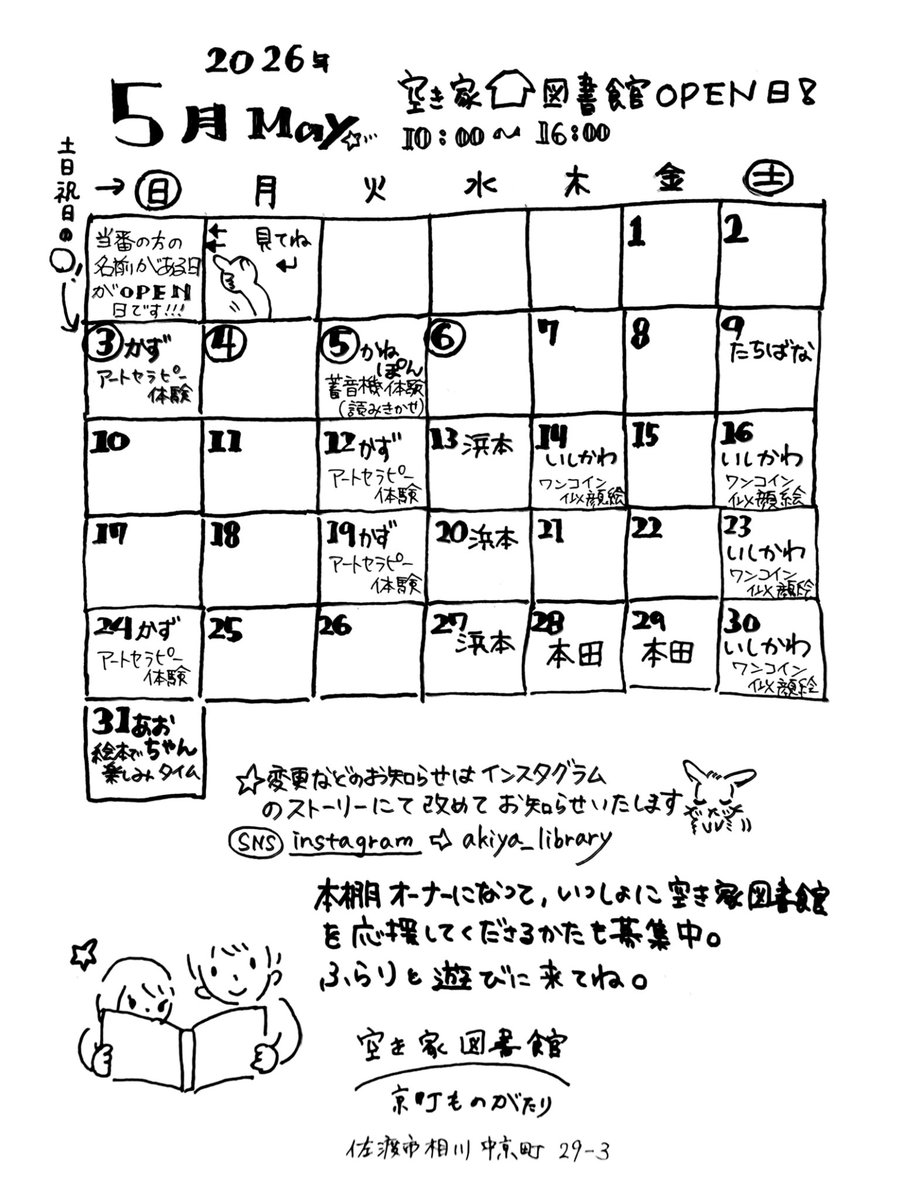 2026年
5月 May
空き家 図書館 OPEN日!
10:00〜16:00
土日祝日の○!
日 月 火 水 木 金 土
当番の方の
名前がある日
がOPEN
日です!!!
見てね
1
2
3 かず
アートセラピー
体験
4
5 かね
ぽん
蓄音機体験
(読みきかせ)
6
7
8
9
たちばな
10
11
12 かず
アートセラピー
体験
13 浜本
14
いしかわ
ワンコイン
似顔絵
15
16
いしかわ
ワンコイン
似顔絵
17
18
19 かず
アートセラピー
体験
20 浜本
21
22
23
いしかわ
ワンコイン
似顔絵
24 かず
アートセラピー
体験
25
26
27
浜本
28
本田
29
本田
30
いしかわ
ワンコイン
似顔絵
31 あお
ちゃん
絵本で
楽しみタイム
☆変更などのお知らせはインスタグラム
のストーリーにて改めてお知らせいたします
SNS instagram ⇨ akiya_library
本棚オーナーになって、いっしょに空き家図書館
を応援してくださるかたも募集中。
ふらりと遊びに来てね。
空き家図書館
京町ものがたり
佐渡市相川中京町 29-3